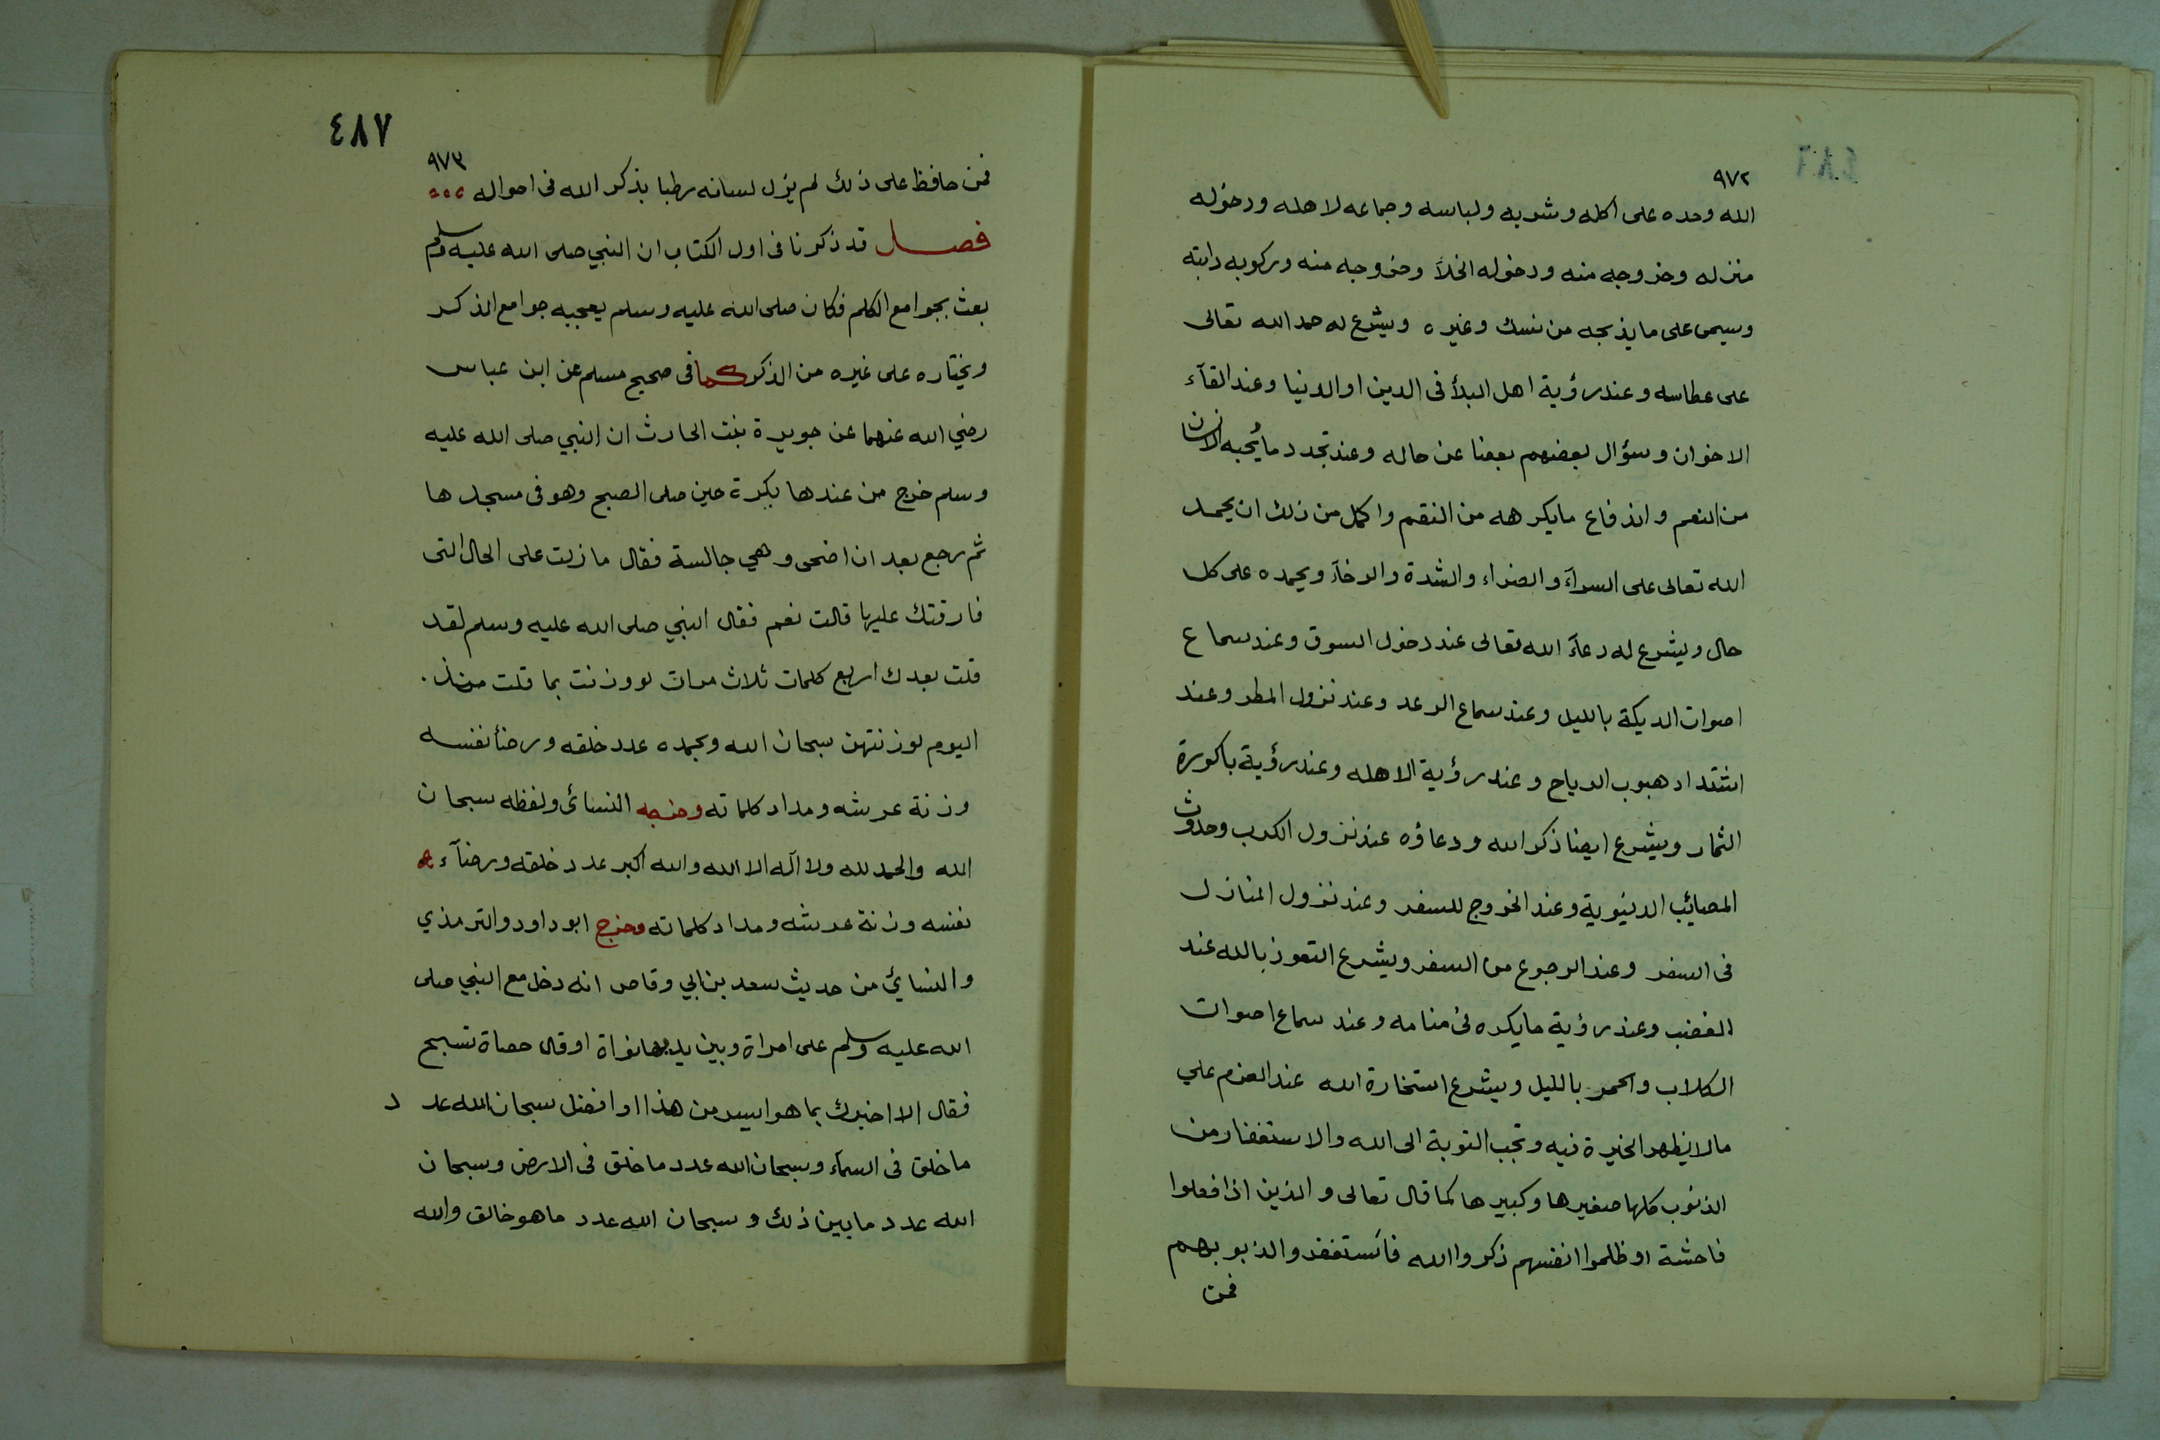 ٩٧٢
الله وحده على اكله وشربه ولباسه وجماعه لاهله ودخوله
منزله وخروجه منه ودخوله الخلآ وخروجه منه وركوبه دابته
وسيمى على ما يذبحه من نسك وغيره ويشرع له حمد الله تعالى
على عطاسه وعند رؤية اهل البلأ فى الدين او الدنيا وعند القآء
الاخوان وسؤال بعضهم بعضا عن حاله وعند تجدد ما يُحبه الانسان
من النعم واندفاع مايكرهه من النقم واكمل من ذلك ان يحمد
الله تعالى على السرآء والضراء والشدة والرخآء ويحمده على كل
حال ويشرع له دعآء الله تعالى عند دخول السوق وعند سماع
اصوات الديكة بالليل وعند سماع الرعد وعند نزول المطر وعند
اشتداد هبوب الرياح وعند رؤية الاهله وعند رؤية باكورة
الثمار ويشرع ايضا ذكر الله ودعاؤه عند نزول الكرب وحدوث
المصائب الدنيوية وعند الخروج للسفر وعند نزول المنازل
فى السفر وعند الرجوع من السفر ويشرع التعوذ بالله عند
الغضب وعند رؤية مايكره فى منامه وعند سماع اصوات
الكلاب والحمر بالليل ويشرع استخارة الله عند العزم علي
مالا يظهر الخيرة فيه وتجب التوبة الى الله والاستغفار من
الذنوب كلها صغيرها وكبيرها كما قال تعالى والذين اذا فعلوا
فاحشة او ظلموا انفسهم ذكروا الله فاستغفروا لذنوبهم
فمن
٤٨٧
٩٧٣
فمن حافظ على ذلك لم يزل لسانه رطبا بذكر الله فى احواله
فصل قد ذكرنا فى اول الكتاب ان النبي صلى الله عليه وسلم
بعث بجوامع الكلم فكان صلى الله عليه وسلم يعجبه جوامع الذكر
ويختاره على غيره من الذكر كما فى صحيح مسلم عن ابن عباس
رضي الله عنهما عن جويرة بنت الحارث ان النبي صلى الله عليه
وسلم خرج من عندها بكرة حين صلى الصبح وهو فى مسجدها
ثم رجع بعد ان اضحى وهي جالسة فقال ما زلت على الحال التى
فارقتك عليها قالت نعم فقال النبي صلى الله عليه وسلم لقد
قلت بعدك اربع كلمات ثلاث مرات لو وزنت بما قلت منذ
اليوم لوزنتهن سبحان الله وبحمده عدد خلقه ورضأ نفسه
وزنة عرشه ومداد كلماته وخرجه النسائى ولفظه سبحان
الله والحمد لله ولا اله الا الله والله اكبر عدد خلقه ورضآء
نفسه وزنة عرشه ومداد كلماته وخرج ابو داود والترمذي
والنسائي من حديث سعد بن ابي وقاص انه دخل مع النبي صلى
الله عليه وسلم على امراة وبين يديها نواة او قال حصاة تسبح
فقال الا اخبرك بما هو ايسر من هذا او افضل سبحان الله عد د
ما خلق فى السمآء وسبحان الله عدد ما خلق فى الارض وسبحان
الله عدد ما بين ذلك وسبحان الله عدد ما هو خالق والله